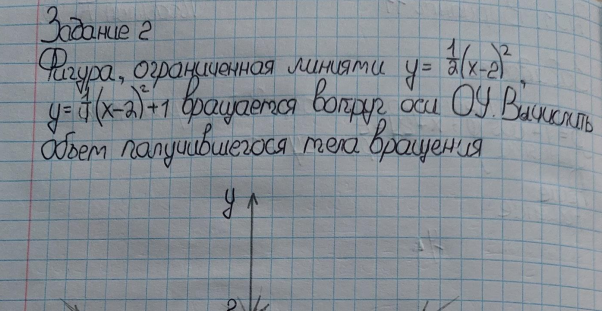 Задание 2
Фигура, ограниченная линиями y = 1/2(x-2)²,
y = 1/4(x-2)²+1 вращается вокруг оси OY. Вычислить
объем получившегося тела вращения
y
2